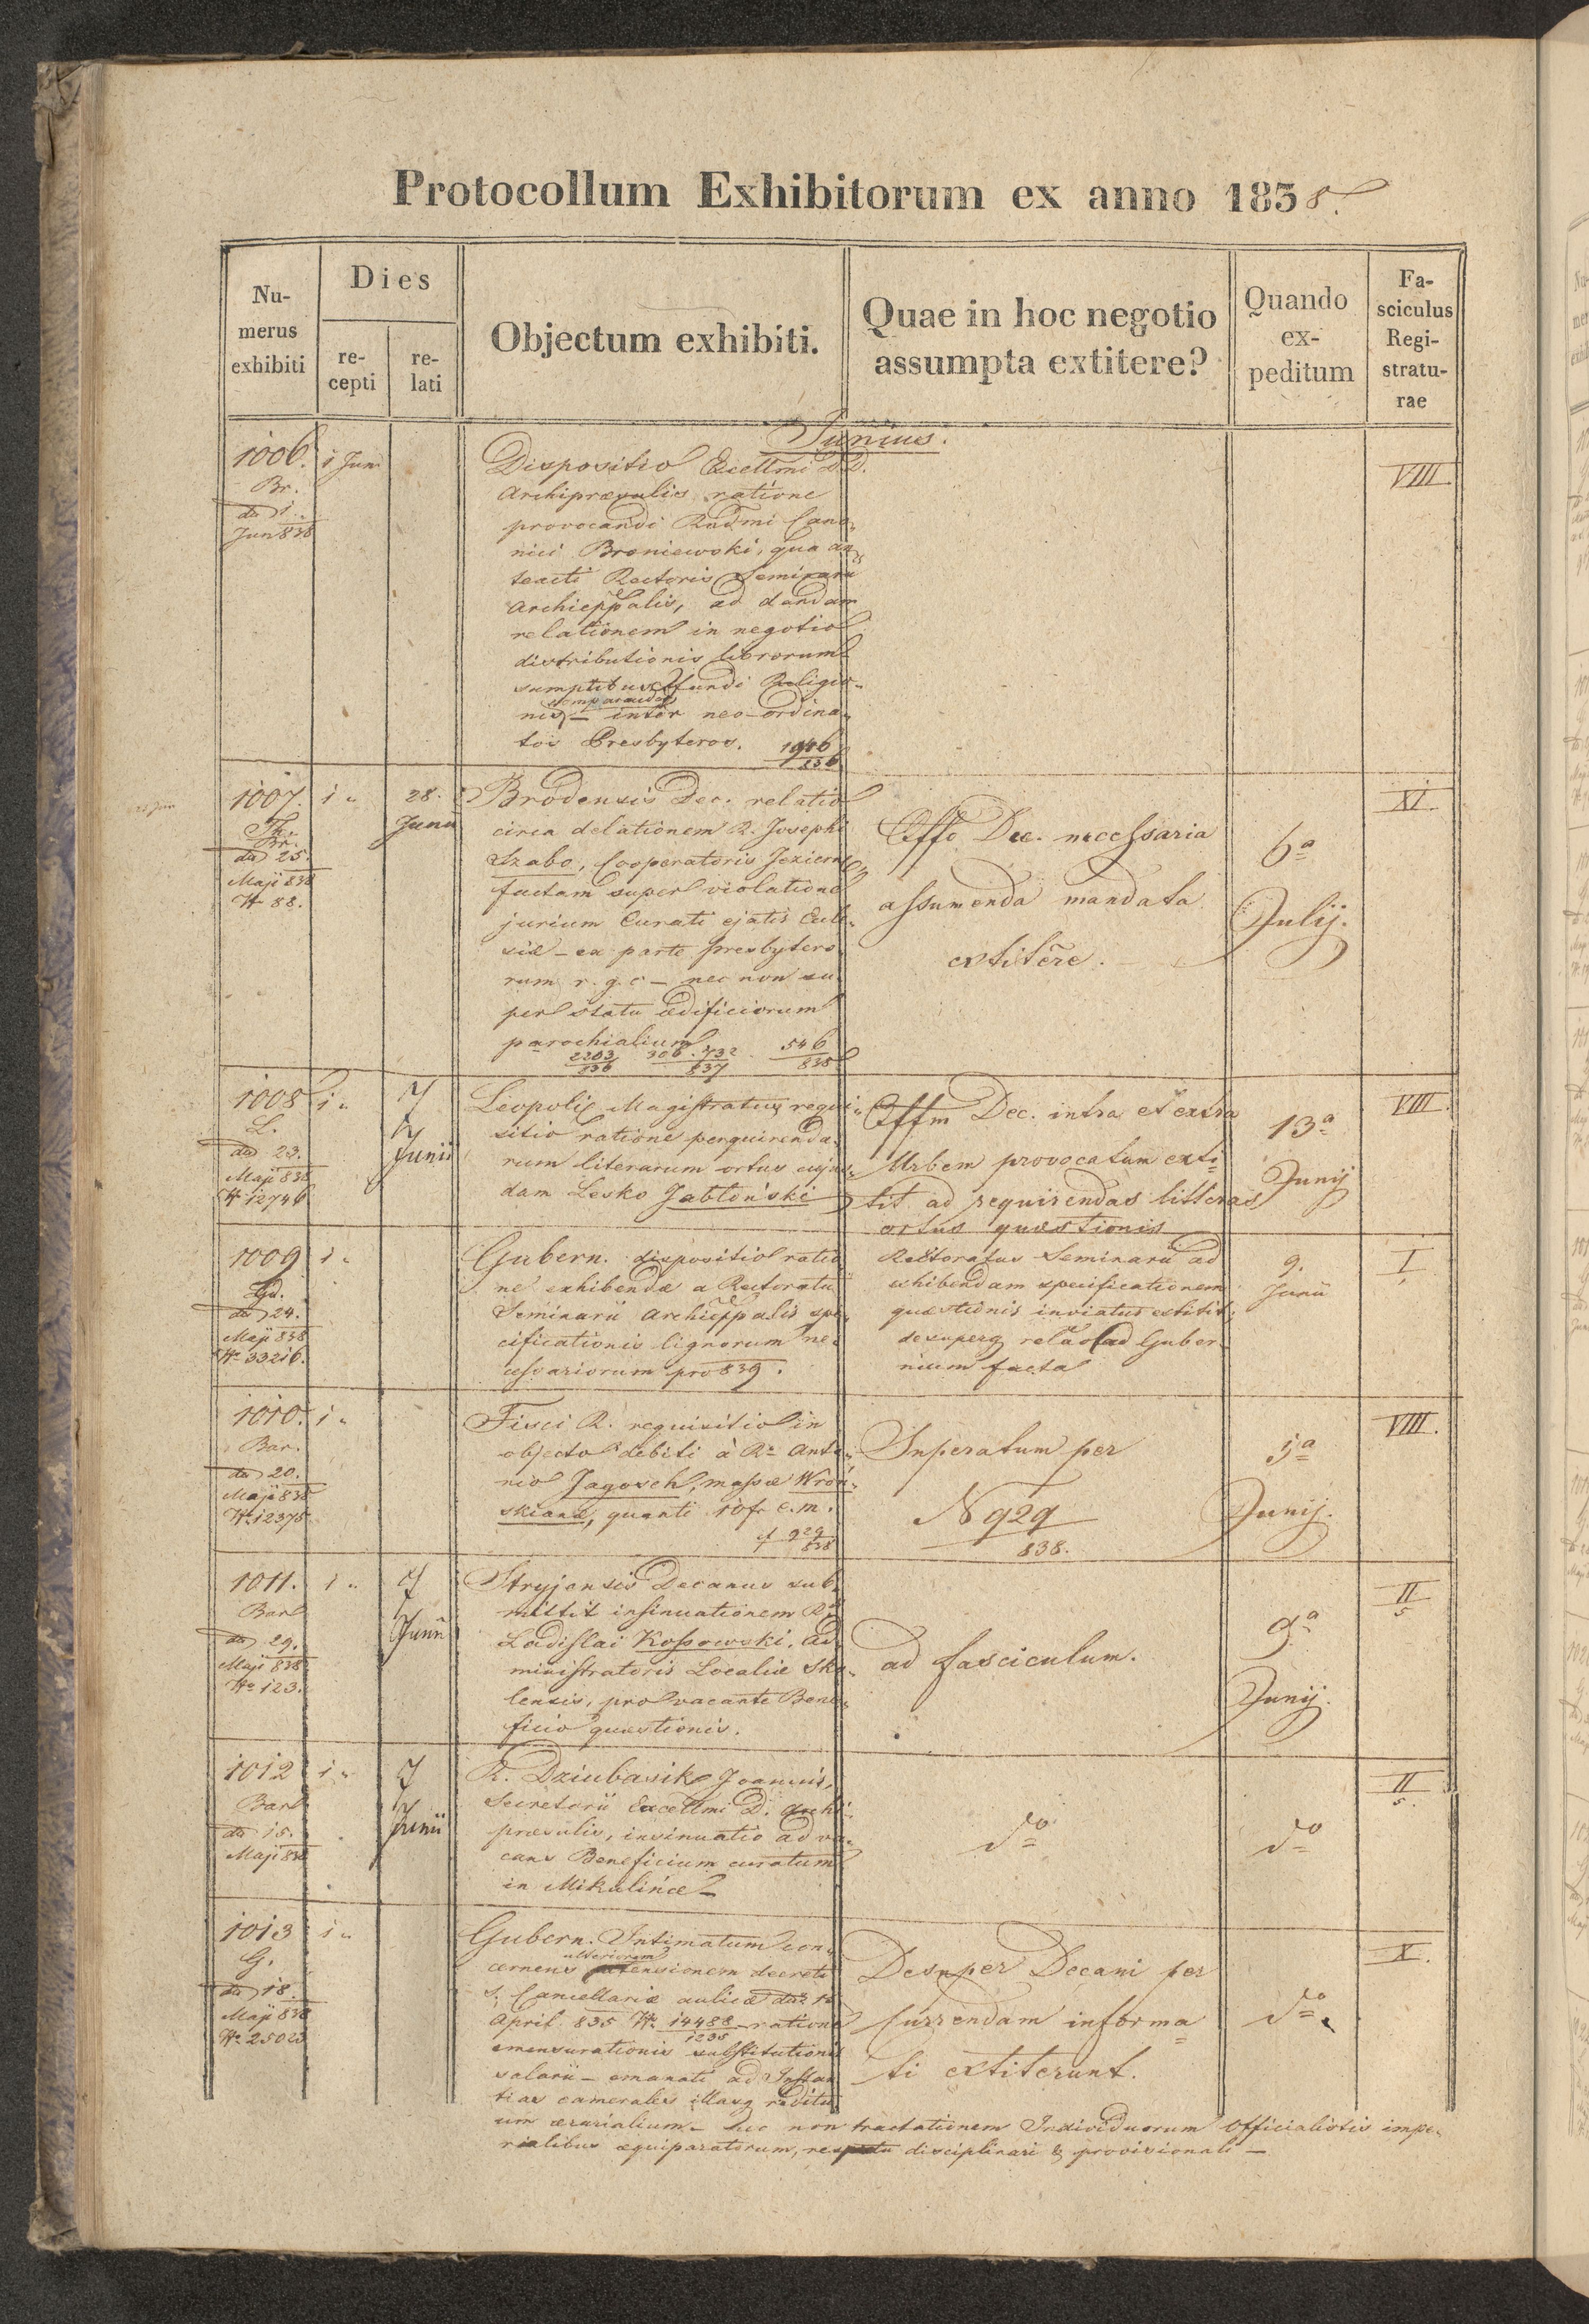 Protocollum Exhibitorum ex anno 1838.
Nu-
merus
exhibiti
Dies
re-
cepti
re-
lati
Objectum exhibiti.
Quae in hoc negotio
assumpta extitere?
Quando
ex-
peditum
Fa-
sciculus
Regi-
stratu-
rae
Junius.
1006.
Br.
dd 1.
Jun 838
1 Juni
Dispositio Excellmi D.D.
Archipræsulis ratione
provocandi Rndmi Cano-
nici Broniewski, qua an-
teacti Rectoris Seminarii
Archieppalis, ad dandam
relationem in negotio
distributionis librorum
sumptibus fundi Religio-
comparandor
nis – inter neo-ordina-
tos Presbyteros.
836
VIII
1007.
Br.
dd 25.
Maji 838
N 88.
1 "
28.
Junii
Brodensis Dec. relatio
circa delationem R. Josephi
Szabo, Cooperatoris Jeziern
factam super violatione
jurium Curati ejatis Eccle-
siæ – ex parte presbytero-
rum r. g. c – nec non su-
per statu ædificiorum
parochialium 546
2203 306. 732 838
836 837
Offo Dec. necessaria
assumenda mandata
extitere.
6a
Julij.
XI.
1008
L.
dd 23.
Maji 838
N 12746
1 "
7
7
Junii
Leopoli Magistratus requi-
sitio ratione perquirenda-
rum literarum ortus cujus-
dam Lesko Jabłoński
Offm Dec. intra et extra
Urbem provocatum exti-
tit ad requirendas litteras
ortus quæstionis
13a
Junij
VIII.
1009
Gd.
dd 24.
Maji 838
No 33216.
1 "
Gubern. dispositio ratio
ne exhibendæ a Rectoratu
Seminarii Archieppalis spe-
cificationis lignorum ne-
cessariorum pro 839.
Rectoratus Seminarii ad
exhibendam specificationem
quæstionis inviatus extitit,
desuperq relao ad Guber-
nium facta
9.
Junii
I
1010.
Bar.
dd 20.
Maji 838
No 12375
1 "
Fisci R. requisitio in
objecto debiti à Ro Anto-
nio Jagosch, massæ Wroń-
skianæ, quanti 10 fr c.m.
cf 929
838
Superatum per
N 929
838.
1a
Junij.
VIII.
1011.
Barl
dd 29.
Maji 838
No 123.
1 "
7
Junii
Stryjensis Decanus sub-
mittit insinuationem R.
Ladislai Kossowski, Ad-
ministratoris Localiæ Sko-
lensis, pro vacante Bene-
ficio quæstionis.
ad fasciculum.
9a
Junij.
II
5
1012
Barl
dd 15.
Maji 838
1 "
7
7
Junii
R. Dziubasik Joannis,
Secretarii Excellmi D. Archi-
præsulis, insinuatio ad va-
cans Beneficium curatum
in Mikulińce –
do
do
II
5.
1013
G.
dd 18.
Maji 838
No 25023
1 "
Gubern. Intimatum con-
ulteriorem
cernens extensionem decreti
s. Cancellariæ aulicæ dd
April. 835 N. 14488 – ratione
1235
emensurationis substitutionis
salarii – emanati ad Instan
tias camerales illasq reditu
um ærarialium – nec non tractationem Individuorum Officialistis impe-
rialibus æquiparatorum, respectu disciplinari & provisionali –
Desuper Decani per
Currendam informa-
ti extiterunt.
do
X.